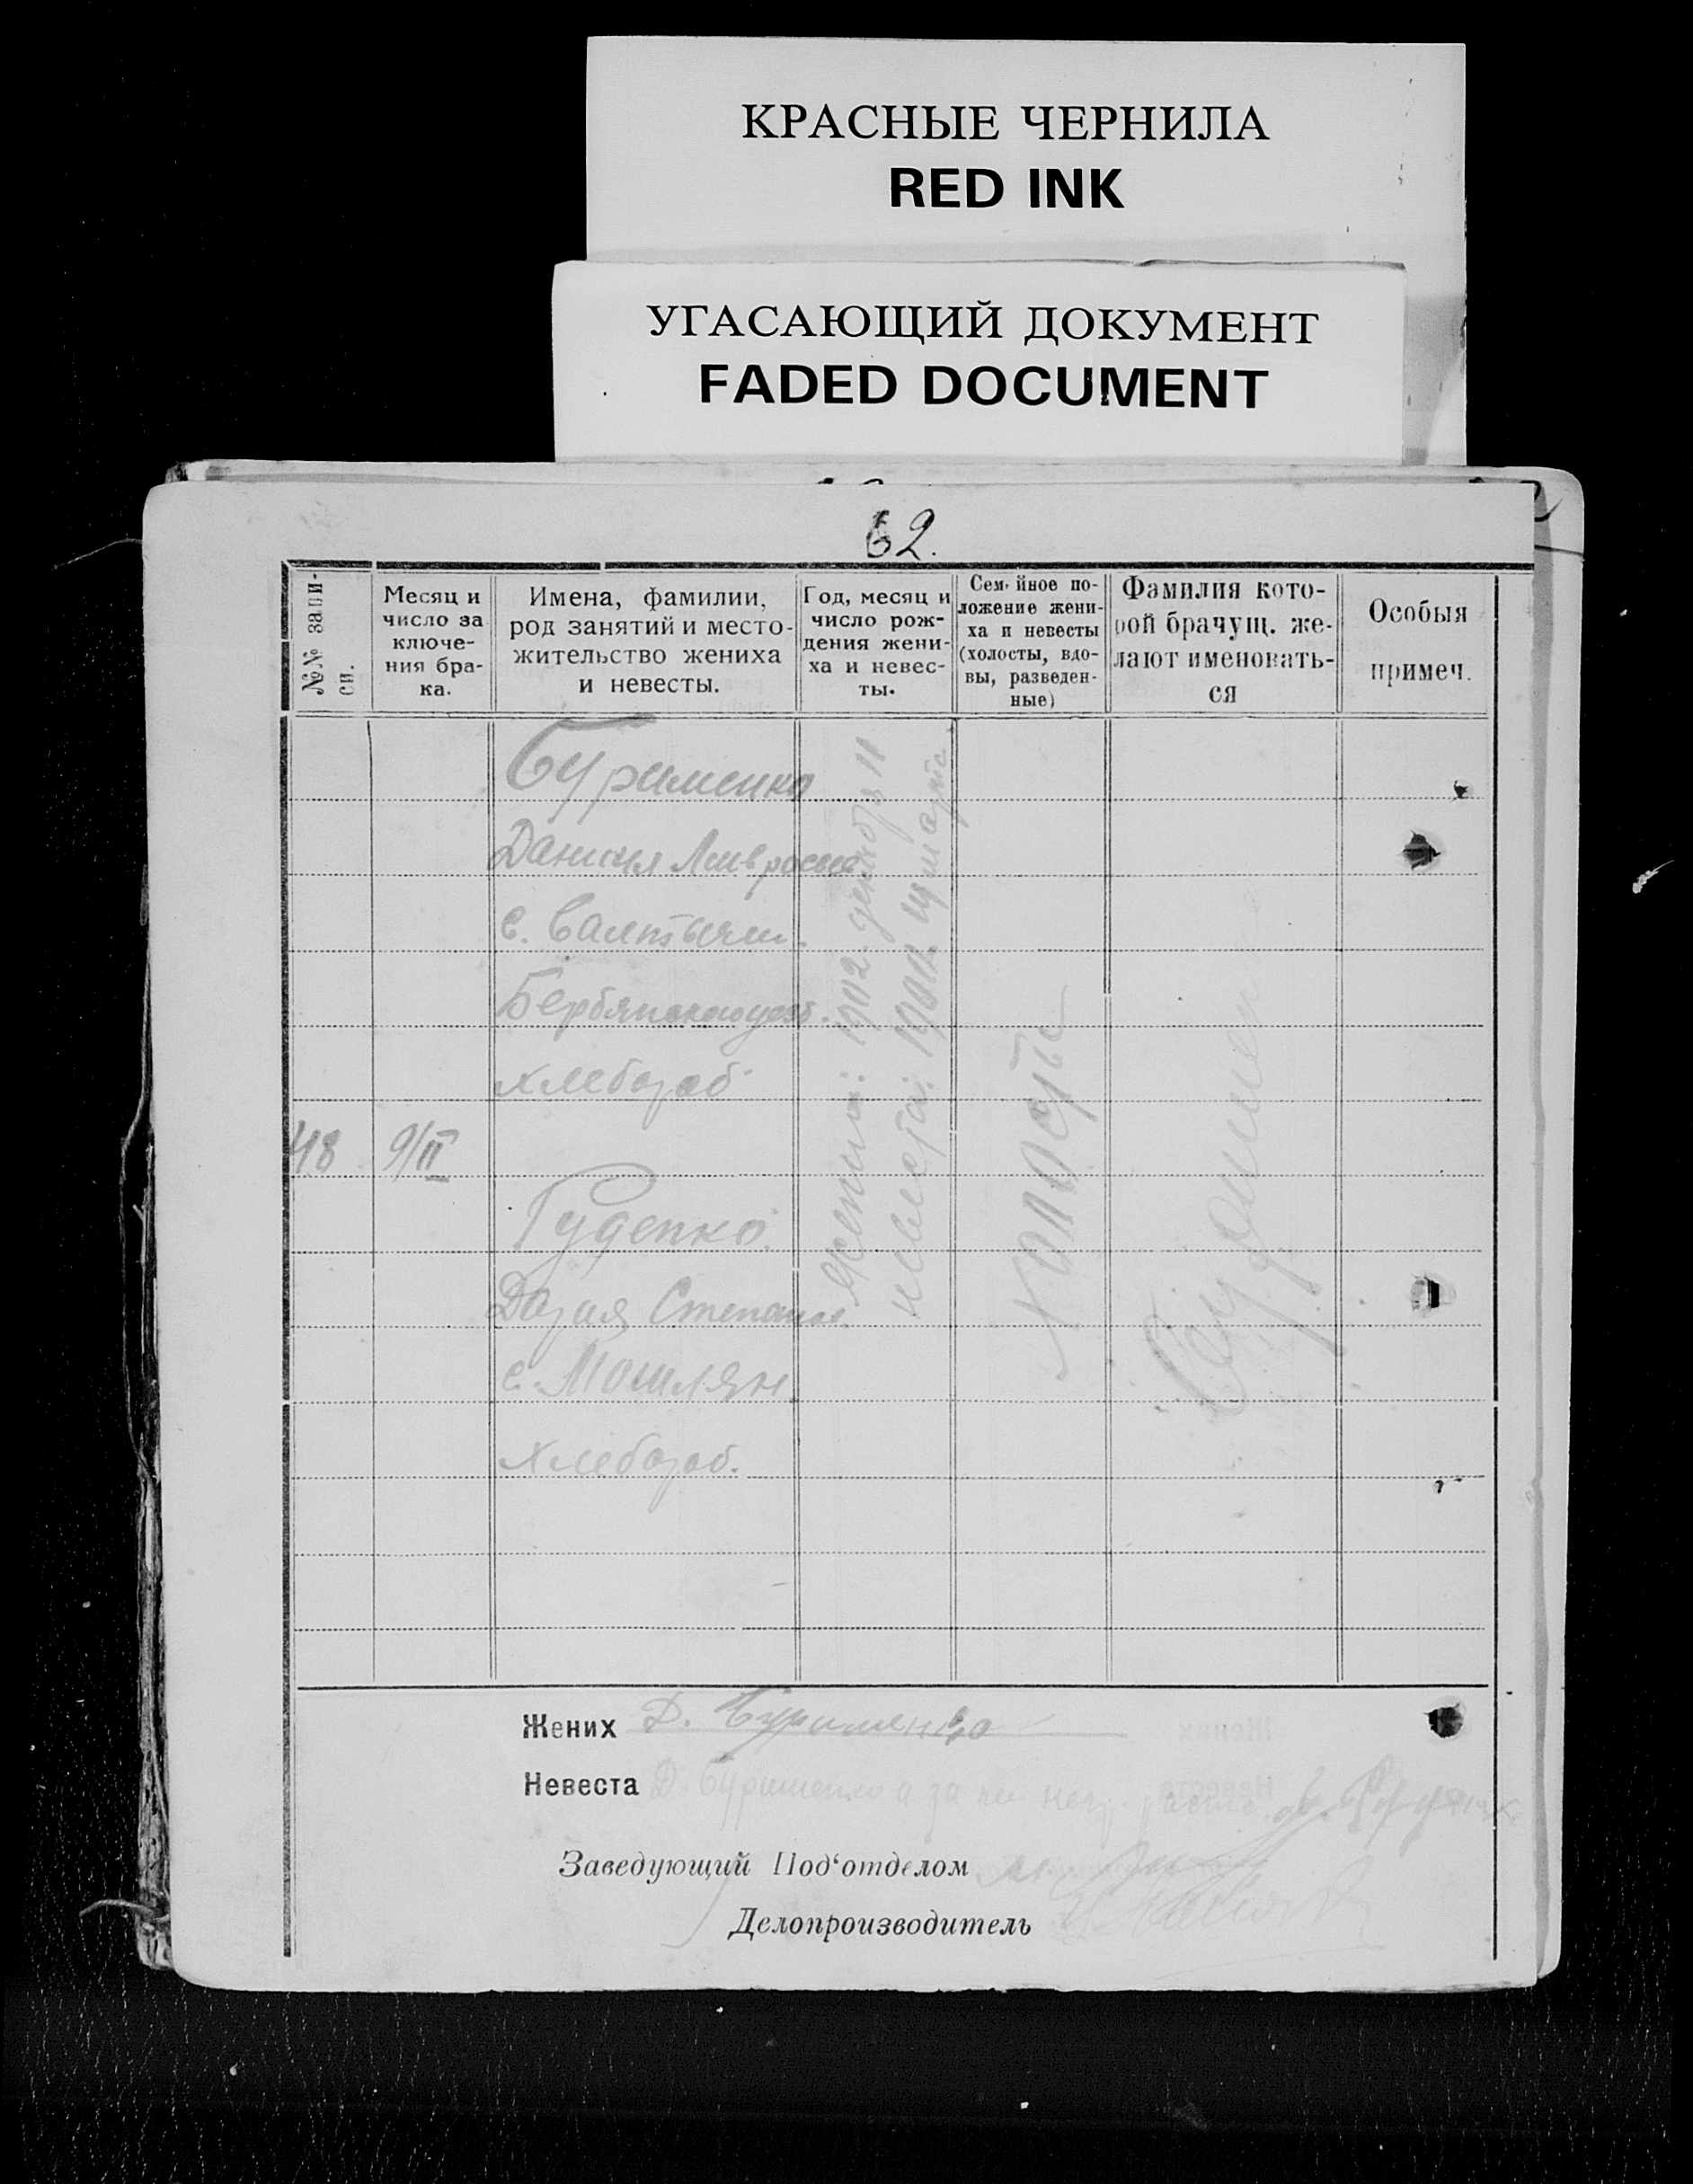 КРАСНЫЕ ЧЕРНИЛА
RED INK
УГАСАЮЩИЙ ДОКУМЕНТ
FADED DOCUMENT
62.
№№ запи-
си.
Месяц и
число за
ключе-
ния бра-
ка.
Имена, фамилии,
род занятий и место-
жительство жениха
и невесты.
Год, месяц и
число рож-
дения жени-
ха и невес-
ты.
Семейное по-
ложение жени-
ха и невесты
(холосты, вдо-
вы, разведен-
ные)
Фамилия кото-
рой брачущ. же-
лают именовать-
ся
Особыя
примеч.
Бурименко
Данииля
с.
Бердянскаго уезд.
хлебороб
48 9/II
Руденко
Дария Степанов.
с.
хлебороб.
жених: 1902. декабря 11
невеста:
холосты
Жених Д. Бурименко
Невеста Д. Бурименко а за нее негр.
Заведующий Под'отделом
Делопроизводитель